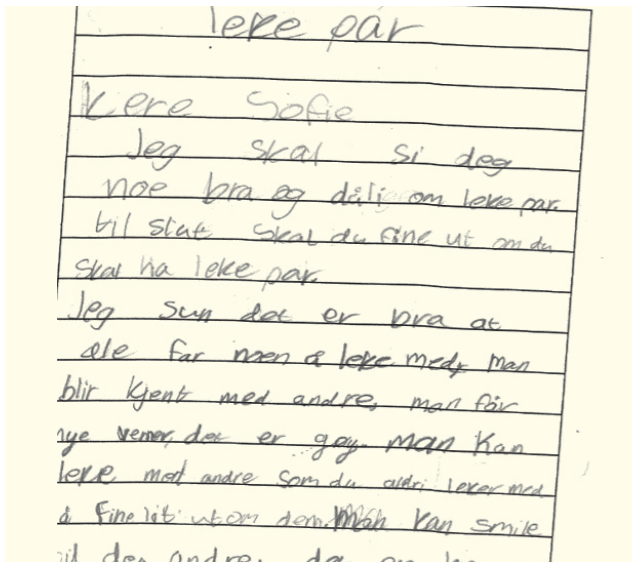 leke par
Kere Sofie
Jeg skal si deg
noe bra og dåli om leke par.
til slut skal du fine ut om du
skal ha leke par.
Jeg sun det er bra at
ale far noen å leke med, man
blir kjent med andre, man får
nye vener, det er gøy. man kan
leke med andre som du aldri leker med
å fine lit ut om dem. Man kan smile
til den andre, da